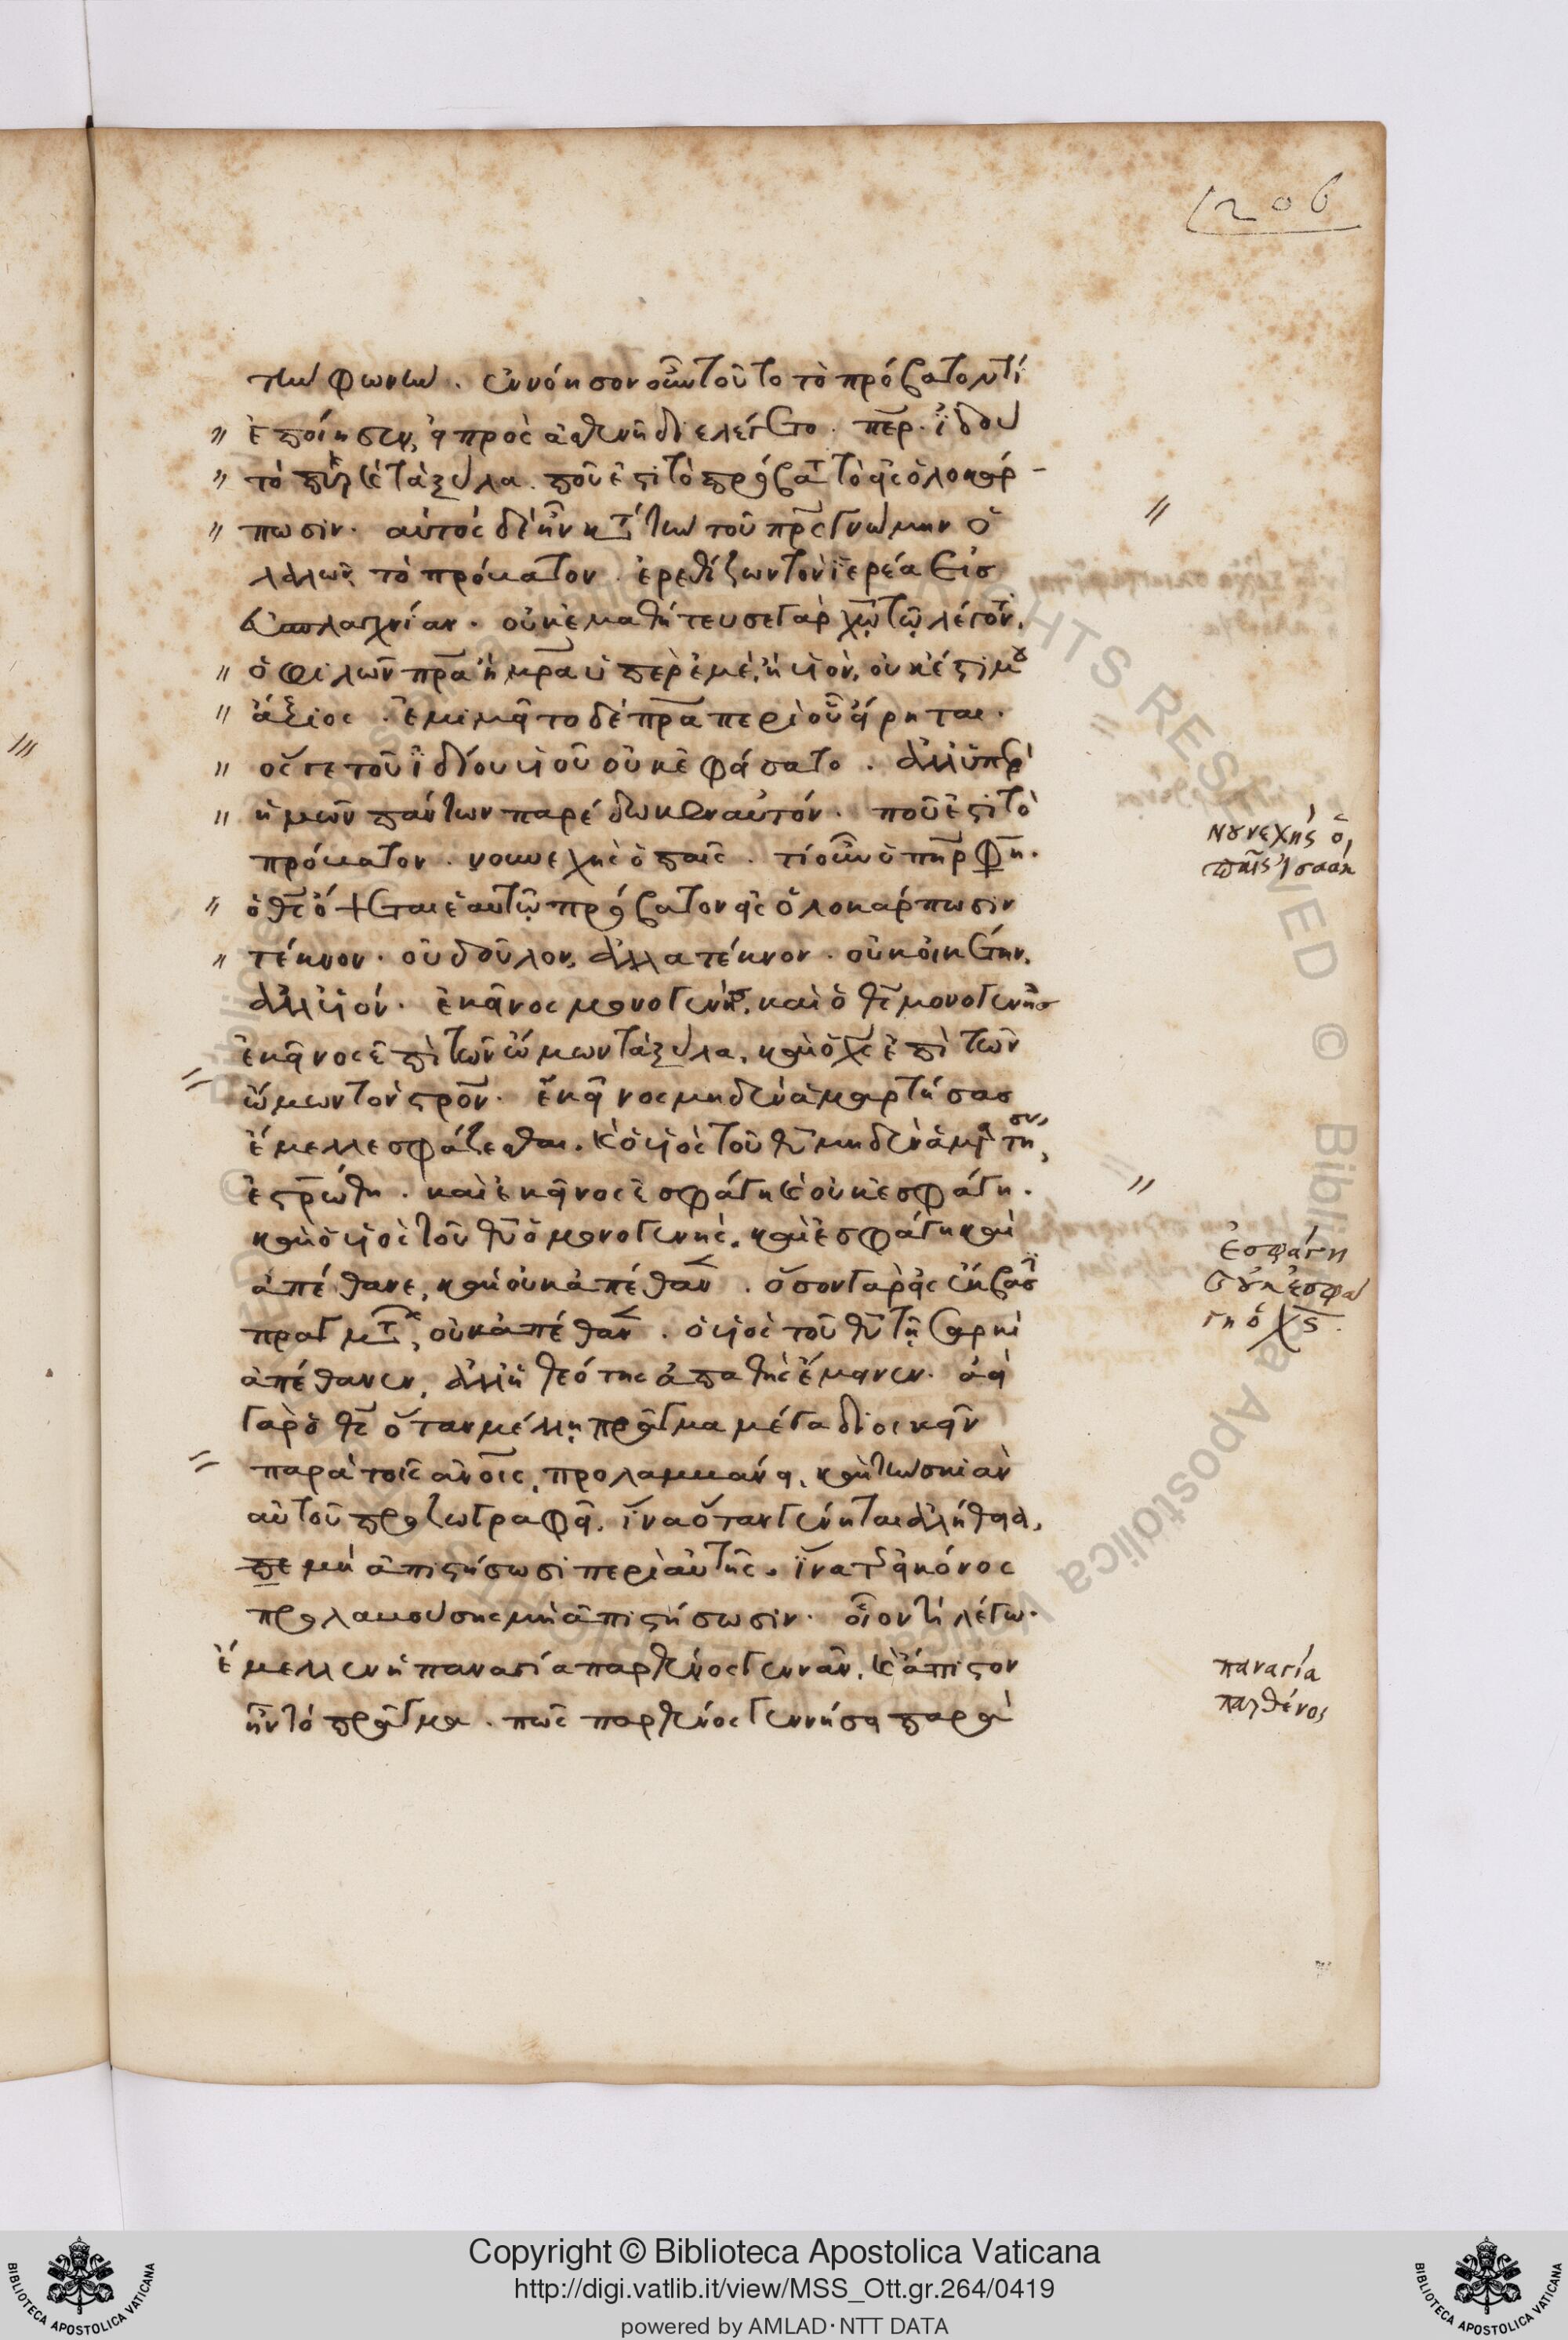 206
τὴν φωνήν. ἐννόησον οὖν τοῦτο τὸ πρόβατον τί
ἐποίησεν, εἰ πρὸς ἀσθενῆ διελέγετο. περ. ἰδοὺ
τὸ πῦρ κ τὰ ξύλα. ποῦ ἐστὶ τὸ πρόβατ τὸ εἰς ὁλοκάρ-
πωσιν. αὐτὸς δὲ ἦν κτ τὴν τοῦ πρς γνώμην ὁ
λαλῶν τὸ πρόβατον. ἐρεθίζων τὸν ἱερέα εἰσ
εὐσπλαγχνίαν. οὐκ ἐμαθήτευσε γὰρ χω τῷ λέγον,
ὁ φιλῶν πρα ἢ μρα ὑπὲρ ἐμὲ, ἢ υἱὸν, οὐκ ἔστι μου
ἄξιος. ἐμιμεῖτο δὲ πρα περὶ οὗ εἴρηται.
ὅς γε τοῦ ἰδίου υἱοῦ οὐκ ἐφείσατο. ἀλλ' ὑπὲρ
ἡμῶν πάντων παρέδωκεν αὐτόν. ποῦ ἐστὶ τὸ
πρόβατον. νουνεχὴς ὁ παῖς. τί οὖν ὁ πηρ φη.
ὁ θς ὄψεται ἑαυτῷ πρόβατον εἰς ὁλοκάρπωσιν
τέκνον. οὐ δοῦλον, ἀλλὰ τέκνον. οὐκ οἰκέτην,
ἀλλ' υἱόν. ἐκεῖνος μονογενὴς, καὶ ὁ θς μονογενὴσ
ἐκεῖνος ἐπὶ τῶν ὤμων τὰ ξύλα, καὶ ὁ χς ἐπὶ τῶν
ὤμων τὸν στρον. ἐκεῖνος μηδὲν ἁμαρτήσας
ἔμελλε σφάζεσθαι. κ ὁ υἱὸς τοῦ θυ μηδὲν ἁμαρτήσας,
ἐστρώθη. καὶ ἐκεῖνος ἐσφάγη κ οὐκ ἐσφάγη.
καὶ ὁ υἱὸς τοῦ θυ ὁ μονογενὴς, καὶ ἐσφάγη καὶ
ἀπέθανε, καὶ οὐκ ἀπέθαν. ὅσον γὰρ εἰς ἔκβασιν
πραγμτ, οὐκ ἀπέθαν. ὁ υἱὸς τοῦ θυ τῇ σαρκὶ
ἀπέθανεν, ἀλλ' ἡ θεότης ἀπαθὴς ἔμεινεν. ἀεὶ
γὰρ ὁ θς ὅταν μέλλῃ πρᾶγμα μέγα διοικεῖν
παρὰ τοῖς ανοις, προλαμβάνει, καὶ τὴν σκιὰν
αὐτοῦ προζωγραφεῖ, ἵνα ὅταν γένηται ἀλήθεια,
μὴ ἀπιστήσωσι περὶ αὐτῆς. ἵνα τ εἰκόνος
προλαβούσης μὴ ἀπιστήσωσιν. οἷόν τι λέγω.
ἔμελλεν ἡ παναγία παρθένος γεννᾶν, κ ἄπιστον
ἦν τὸ πρᾶγμα. πῶς παρθένος γεννήσει παρὰ
νουνεχὴς ὁ
παῖς Ἰσαάκ
ἐσφάγη
κ οὐκ ἐσφά
γη ὁ χς.
παναγία
παρθένος
Copyright © Biblioteca Apostolica Vaticana
http://digi.vatlib.it/view/MSS_Ott.gr.264/0419
powered by AMLAD·NTT DATA
BIBLIOTECA APOSTOLICA VATICANA
BIBLIOTECA APOSTOLICA VATICANA